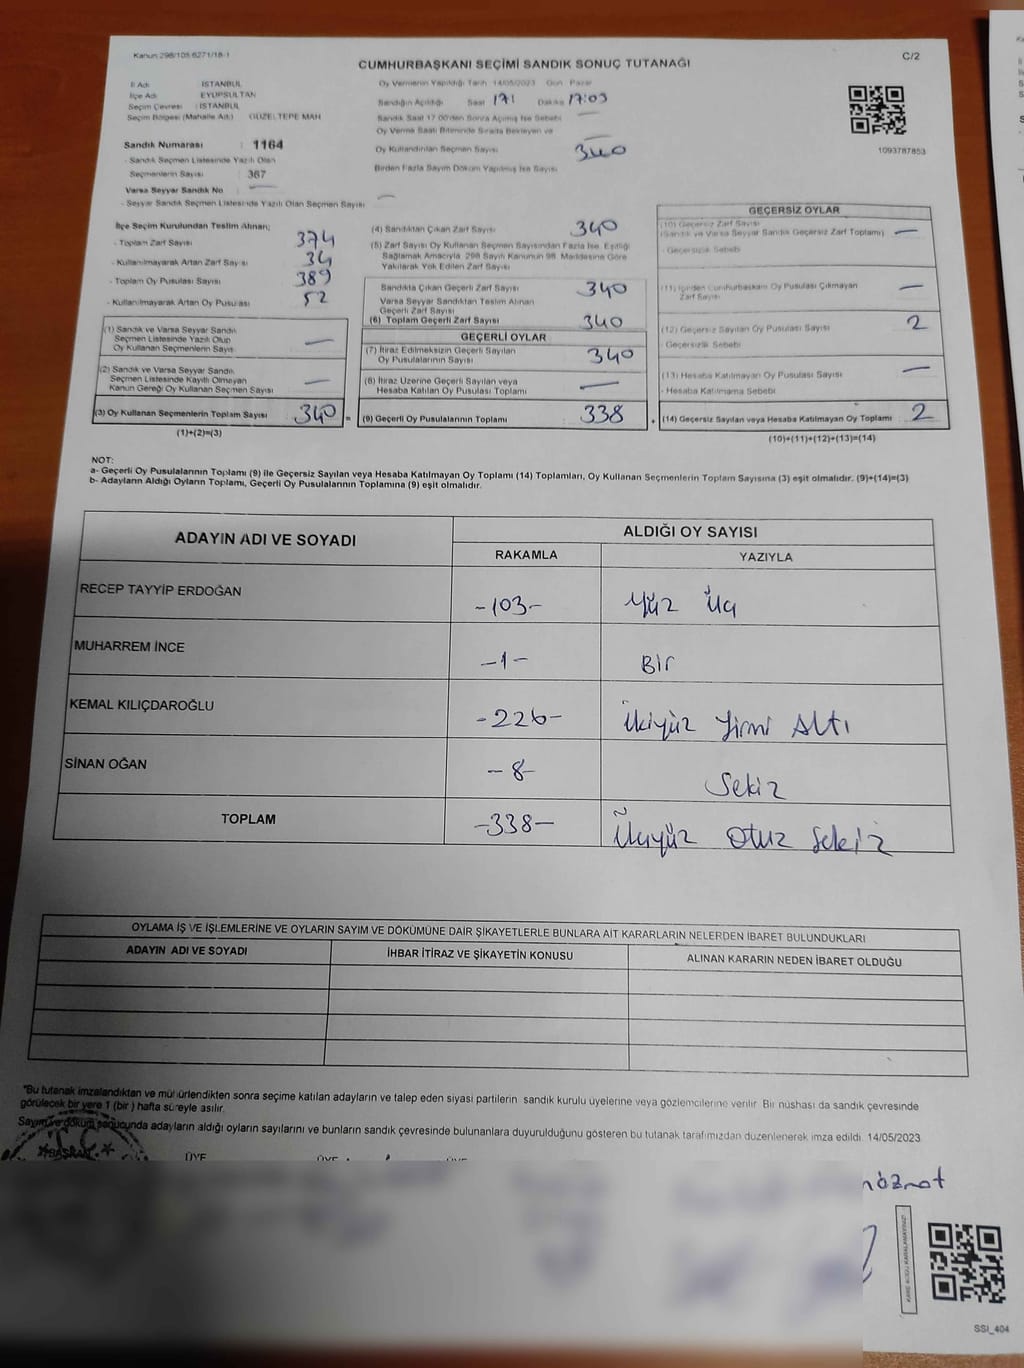 Kanun 298/105 6271/18-1
C/2
CUMHURBAŞKANI SEÇİMİ SANDIK SONUÇ TUTANAĞI
İl Adı İSTANBUL
İlçe Adı EYÜPSULTAN
Seçim Çevresi : İSTANBUL
Seçim Bölgesi (Mahalle Adı) GÜZELTEPE MAH
Sandık Numarası : 1164
- Sandık Seçmen Listesinde Yazılı Olan
Seçmenlerin Sayısı : 367
Varsa Seyyar Sandık No —
- Seyyar Sandık Seçmen Listesinde Yazılı Olan Seçmen Sayısı —
Oy Vermenin Yapıldığı Tarih 14/05/2023 Gün Pazar
Sandığın Açıldığı Saat Dakika 17:03
Sandık Saat 17 00'den Sonra Açılmış İse Sebebi —
Oy Verme Saati Bitiminde Sırada Bekleyen ve
Oy Kullandırılan Seçmen Sayısı — 340
Birden Fazla Sayım Döküm Yapılmış İse Sayısı
1093787853
İlçe Seçim Kurulundan Teslim Alınan;
- Toplam Zarf Sayısı 374
- Kullanılmayarak Artan Zarf Sayısı 34
- Toplam Oy Pusulası Sayısı 389
- Kullanılmayarak Artan Oy Pusulası 52
(1) Sandık ve Varsa Seyyar Sandık
Seçmen Listesinde Yazılı Olup
Oy Kullanan Seçmenlerin Sayısı —
(2) Sandık ve Varsa Seyyar Sandık
Seçmen Listesinde Kayıtlı Olmayan
Kanun Gereği Oy Kullanan Seçmen Sayısı —
(3) Oy Kullanan Seçmenlerin Toplam Sayısı 340 =
(1)+(2)=(3)
(4) Sandıktan Çıkan Zarf Sayısı 340
(5) Zarf Sayısı Oy Kullanan Seçmen Sayısından Fazla İse, Eşitliği
Sağlamak Amacıyla 298 Sayılı Kanunun 98. Maddesine Göre
Yakılarak Yok Edilen Zarf Sayısı
Sandıkta Çıkan Geçerli Zarf Sayısı 340
Varsa Seyyar Sandıktan Teslim Alınan
Geçerli Zarf Sayısı
(6) Toplam Geçerli Zarf Sayısı 340
GEÇERLİ OYLAR
(7) İtiraz Edilmeksizin Geçerli Sayılan
Oy Pusulalarının Sayısı 340
(8) İtiraz Üzerine Geçerli Sayılan veya
Hesaba Katılan Oy Pusulası Toplamı —
(9) Geçerli Oy Pusulalarının Toplamı 338 +
GEÇERSİZ OYLAR
(10) Geçersiz Zarf Sayısı
(Sandık ve Varsa Seyyar Sandık Geçersiz Zarf Toplamı) —
- Geçersizlik Sebebi
(11) İçinden Cumhurbaşkanı Oy Pusulası Çıkmayan
Zarf Sayısı —
(12) Geçersiz Sayılan Oy Pusulası Sayısı 2
Geçersizlik Sebebi
(13) Hesaba Katılmayan Oy Pusulası Sayısı —
- Hesaba Katılmama Sebebi
(14) Geçersiz Sayılan veya Hesaba Katılmayan Oy Toplamı 2
(10)+(11)+(12)+(13)=(14)
NOT:
a- Geçerli Oy Pusulalarının Toplamı (9) ile Geçersiz Sayılan veya Hesaba Katılmayan Oy Toplamı (14) Toplamları, Oy Kullanan Seçmenlerin Toplam Sayısına (3) eşit olmalıdır. (9)+(14)=(3)
b- Adayların Aldığı Oyların Toplamı, Geçerli Oy Pusulalarının Toplamına (9) eşit olmalıdır.
ADAYIN ADI VE SOYADI ALDIĞI OY SAYISI
RAKAMLA YAZIYLA
RECEP TAYYİP ERDOĞAN -103- Yüz Üç
MUHARREM İNCE -1- Bir
KEMAL KILIÇDAROĞLU -226- İkiyüz Yirmi Altı
SİNAN OĞAN -8- Sekiz
TOPLAM -338- Üçyüz Otuz Sekiz
OYLAMA İŞ VE İŞLEMLERİNE VE OYLARIN SAYIM VE DÖKÜMÜNE DAİR ŞİKAYETLERLE BUNLARA AİT KARARLARIN NELERDEN İBARET BULUNDUKLARI
ADAYIN ADI VE SOYADI İHBAR İTİRAZ VE ŞİKAYETİN KONUSU ALINAN KARARIN NEDEN İBARET OLDUĞU
"Bu tutanak imzalandıktan ve mühürlendikten sonra seçime katılan adayların ve talep eden siyasi partilerin sandık kurulu üyelerine veya gözlemcilerine verilir Bir nüshası da sandık çevresinde
görülecek bir yere 1 (bir) hafta süreyle asılır.
Sayım ve döküm sonucunda adayların aldığı oyların sayılarını ve bunların sandık çevresinde bulunanlara duyurulduğunu gösteren bu tutanak tarafımızdan düzenlenerek imza edildi. 14/05/2023
BAŞKAN ÜYE ÜYE ÜYE
SSI_404